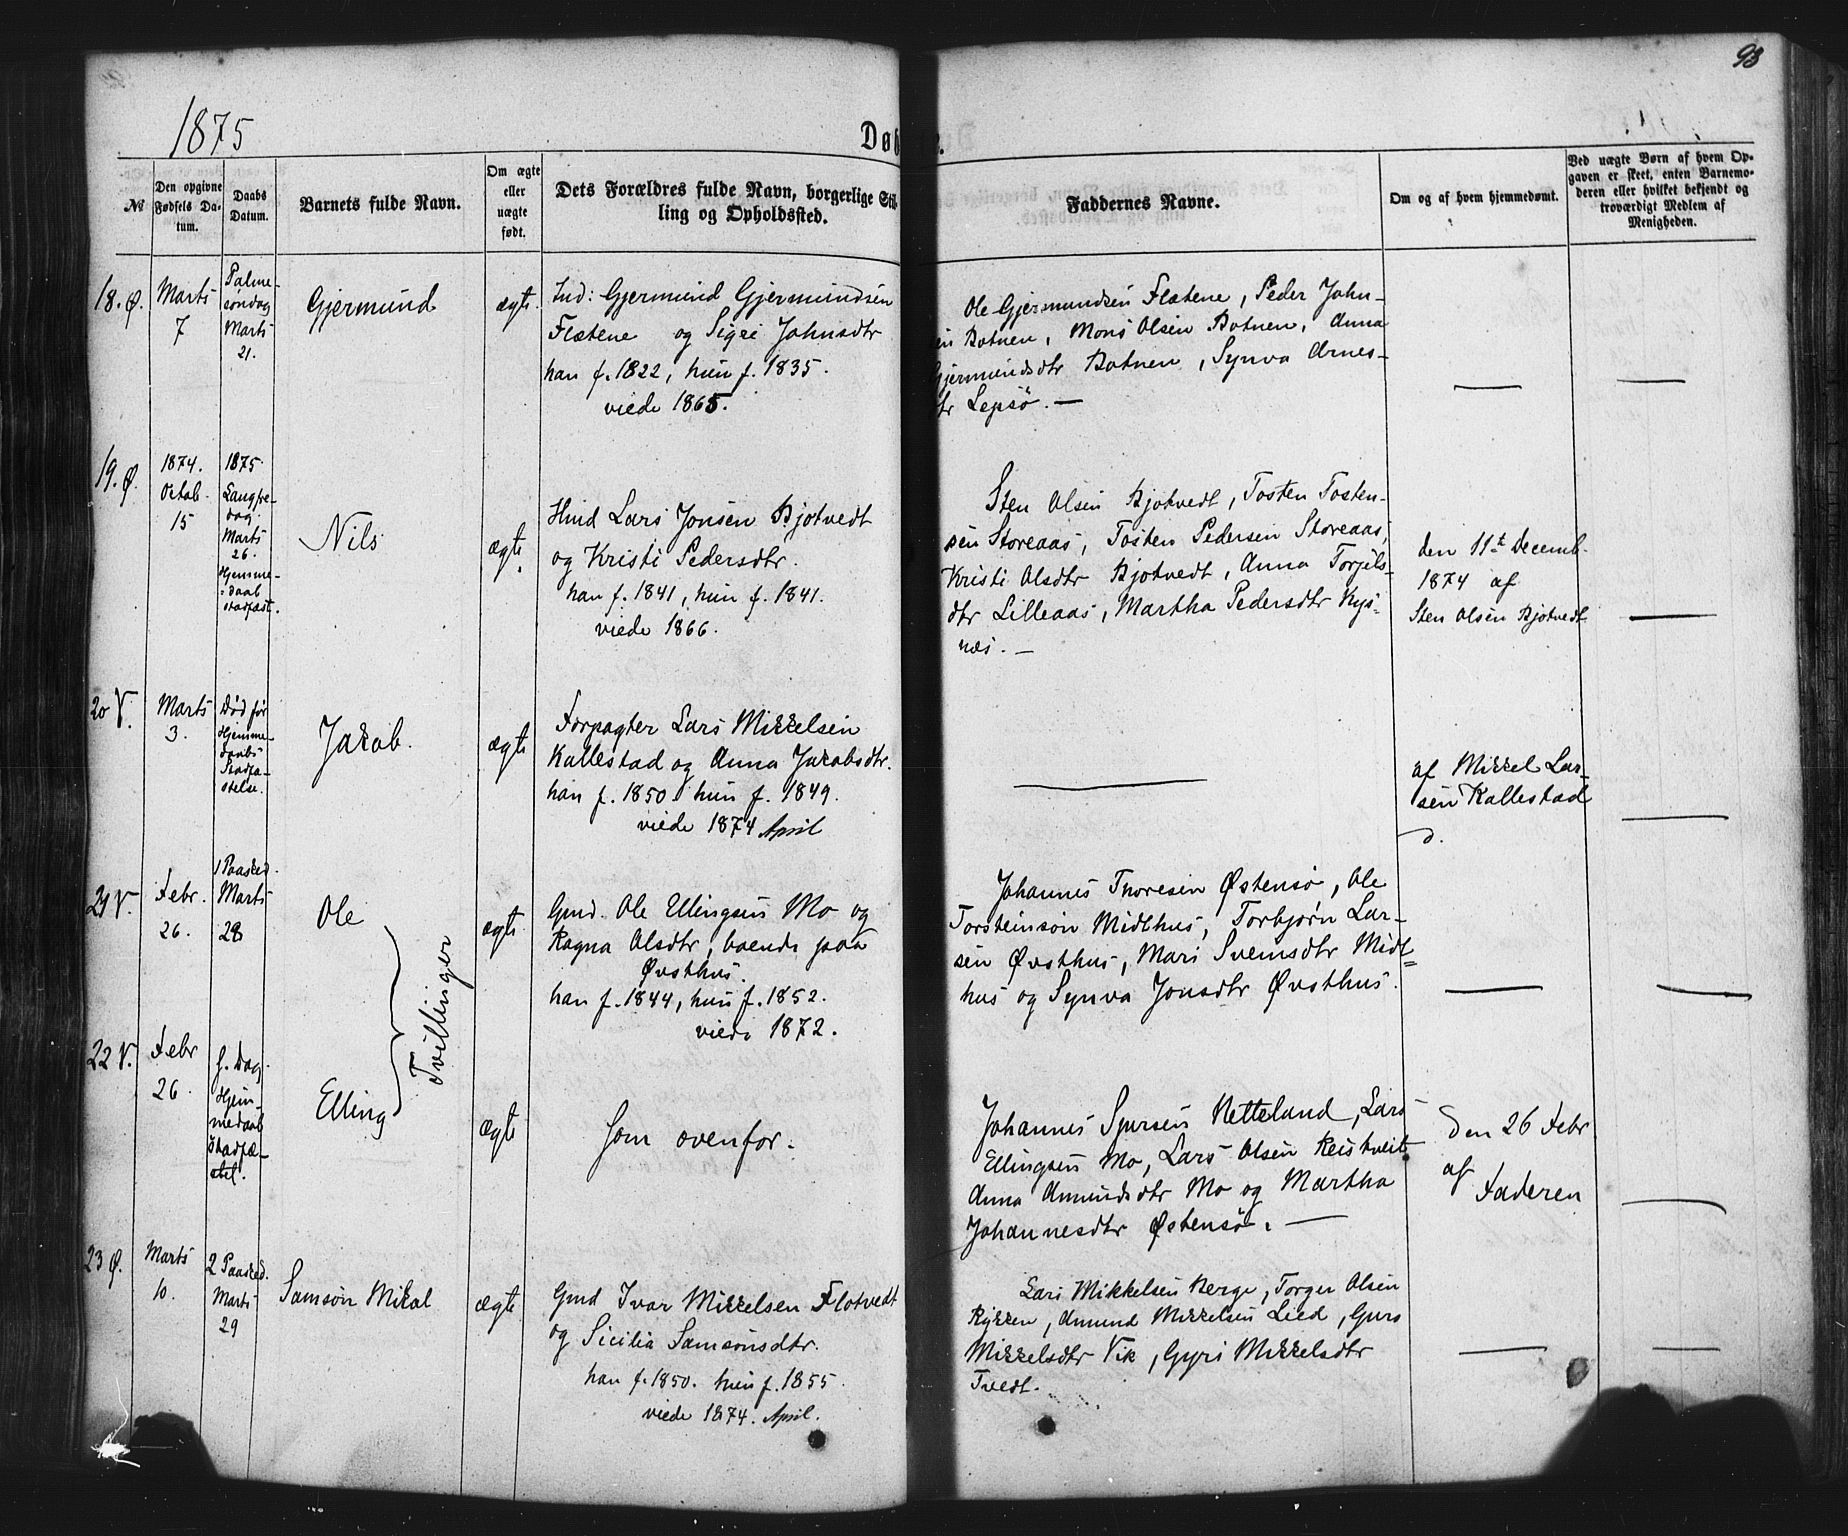 93
1875
Døb
e.
№
Den opgivne Fødsels Datum.
Daabs Datum.
Barnets fulde Navn.
Om ægte eller uægte født.
Dets Forældres fulde Navn, borgerlige Stilling og Opholdssted.
Faddernes Navne.
Om og af hvem hjemmedømt.
Ved uægte Børn af hvem Opgaven er skeet, enten Barnemoderen eller hvilket bekjendt og troværdigt Medlem af Menigheden.
18. Ø.
Marts
7
Palme-
søndag
Marts
21.
Gjermund
ægte
Ind: Gjermund Gjermundsen
Flætene og Sigri Johnsdtr
han f. 1822, hun f. 1835.
viede 1865.
Ole Gjermundsen Flætene, Peder John-
sen Botnen, Mons Olsen Botnen, Anna
Gjermundsdtr Botnen, Synva Arnes-
dtr Lepsø. —
19. Ø.
1874.
Octob.
15
1875.
Langfre-
dag
Marts
26.
Hjemme-
daab
stadfæst.
Nils
ægte
Hmd Lars Jonsen Bjotvedt
og Kristi Pedersdtr.
han f. 1841, hun f. 1841.
viede 1866.
Sten Olsen Bjotvedt, Tosten Tosten-
sen Storeaas, Tosten Pedersen Storeaas,
Kristi Olsdtr Bjotvedt, Anna Torjils-
dtr Lilleaas, Martha Pedersdtr Kys-
næs. —
den 11te Decemb.
1874 af
Sten Olsen Bjotvedt
20 V.
Marts
3.
Død før
Hjemme-
daabs
Stadfæ-
stelse.
Jakob.
ægte
Forpagter Lars Mikkelsen
Kallestad og Anna Jakobsdtr.
han f. 1850 hun f. 1849.
viede 1874 April
af Mikkel Lar-
sen Kallestad
21 V.
Febr.
26.
1 Paasked.
Marts
28
Ole
Tvillinger
ægte
Gmd. Ole Ellingsen Mo og
Ragna Olsdtr, boende paa
Øvsthus.
han f. 1844, hun f. 1852.
viede 1872.
Johannes Thoresen Østensø, Ole
Torsteinson Midthus, Torbjørn Lar-
sen Øvsthus, Mari Svensdtr Midt=
hus og Synva Jonsdtr Øvsthus.
22 V.
Febr
26.
s. Dag.
Hjem-
medaab
Stadfæ-
stet.
Elling
ægte
Som ovenfor.
Johannes Sjursen Netteland, Lars
Ellingsen Mo, Lars Olsen Reiskveit
Anna Amundsdtr Mo og Martha
Johannesdtr Østensø. —
den 26 Febr
af
Faderen
23 Ø.
Marts
10.
2 Paasked.
Marts
29
Samson Mikal
ægte
Gmd Ivar Mikkelsen Flotvedt
og Sicilia Samsonsdtr.
han f. 1850. hun f. 1855.
viede 1874. April.
Lars Mikkelsen Berge, Torger Olsen
Rykken, Amund Mikkelsen Lied, Guro
Mikkelsdtr Vik, Gyri Mikkelsdtr
Tvedt.